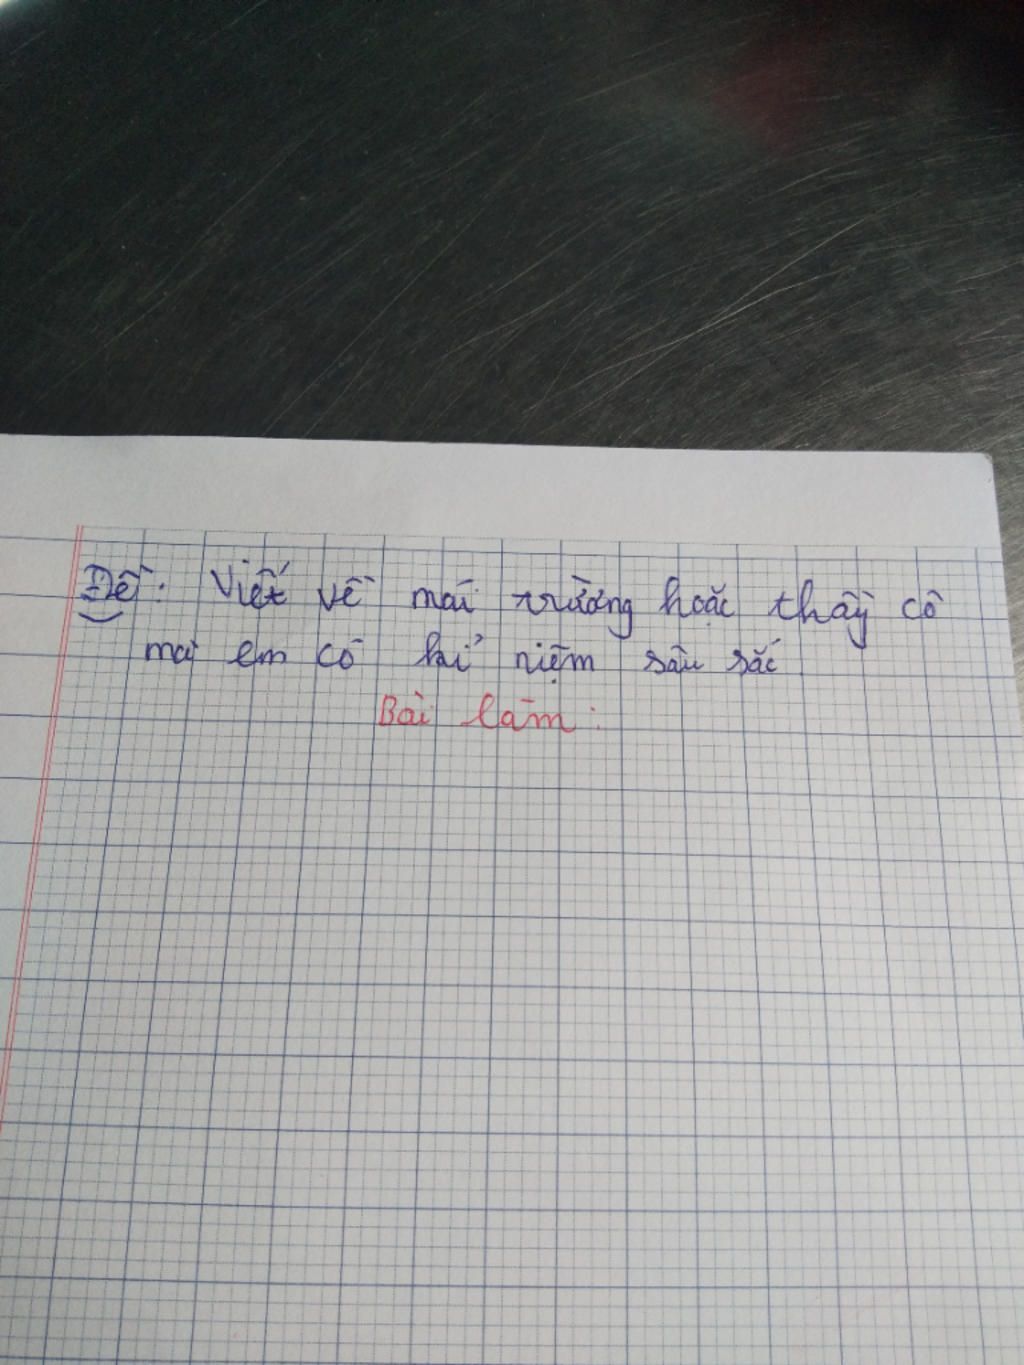 Đề: Viết về mái trường hoặc thầy cô
mà em có kỉ niệm sâu sắc
Bài làm: